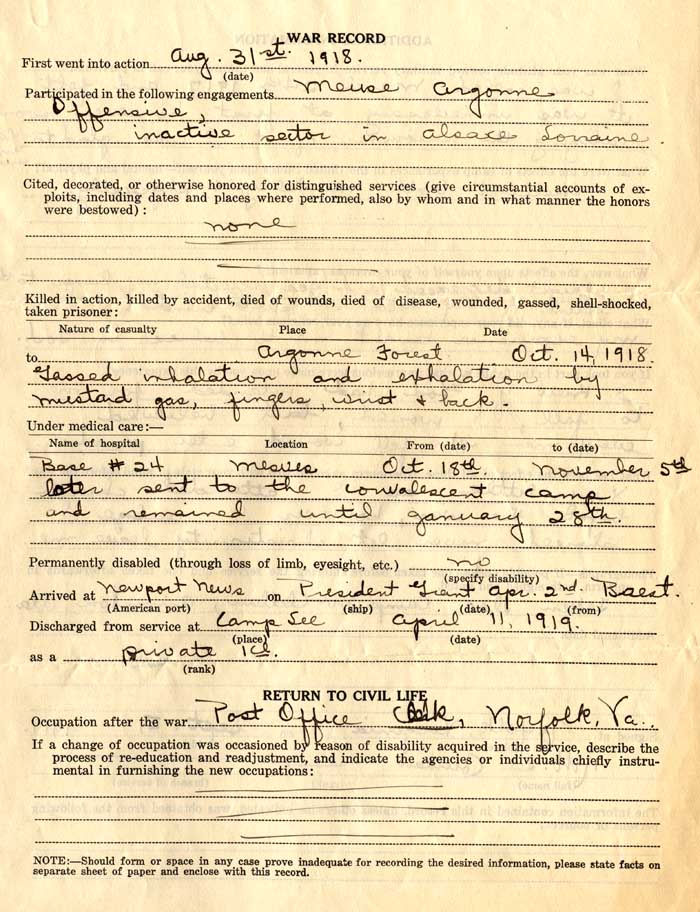 WAR RECORD
First went into action Aug. 31st. 1918.
(date)
Participated in the following engagements Meuse Argonne
Offensive,
inactive sector in Alsace Lorraine
Cited, decorated, or otherwise honored for distinguished services (give circumstantial accounts of ex-
ploits, including dates and places where performed, also by whom and in what manner the honors
were bestowed) :
none
Killed in action, killed by accident, died of wounds, died of disease, wounded, gassed, shell-shocked,
taken prisoner:
Nature of casualty Place Date
to Argonne Forest Oct. 14, 1918.
Gassed inhalation and exhalation by
mustard gas, fingers, wrist + back.
Under medical care:—
Name of hospital Location From (date) to (date)
Base # 24 Mesves Oct. 18th. November 5th
later sent to the convalescent camp
and remained until January 28th.
Permanently disabled (through loss of limb, eyesight, etc.) no
(specify disability)
Arrived at Newport News on President Grant Apr. 2nd.
(American port) (ship) (date) (from)
Discharged from service at Camp Lee April 11, 1919.
(place) (date)
as a private 1cl.
(rank)
RETURN TO CIVIL LIFE
Occupation after the war Post Office Clerk, Norfolk, Va..
If a change of occupation was occasioned by reason of disability acquired in the service, describe the
process of re-education and readjustment, and indicate the agencies or individuals chiefly instru-
mental in furnishing the new occupations:
NOTE:—Should form or space in any case prove inadequate for recording the desired information, please state facts on
separate sheet of paper and enclose with this record.